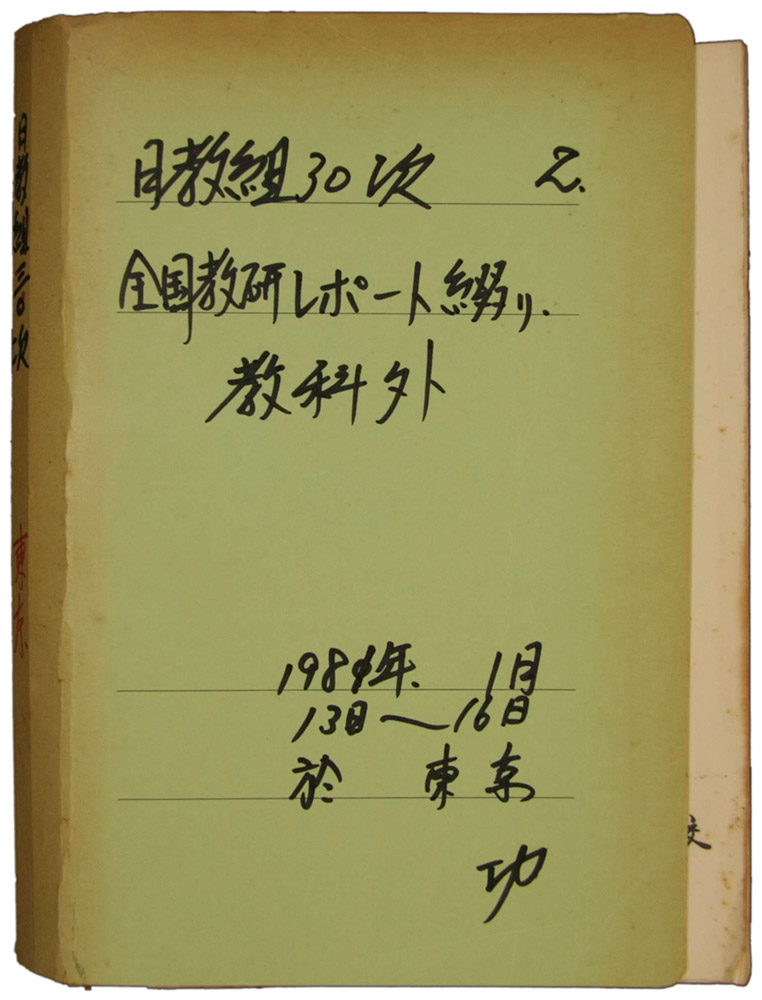 日教組30次 2.
全国教研レポート綴り.
教科外
1981年. 1月
13日〜16日
於 東京
功
日教組三〇次
東京
校